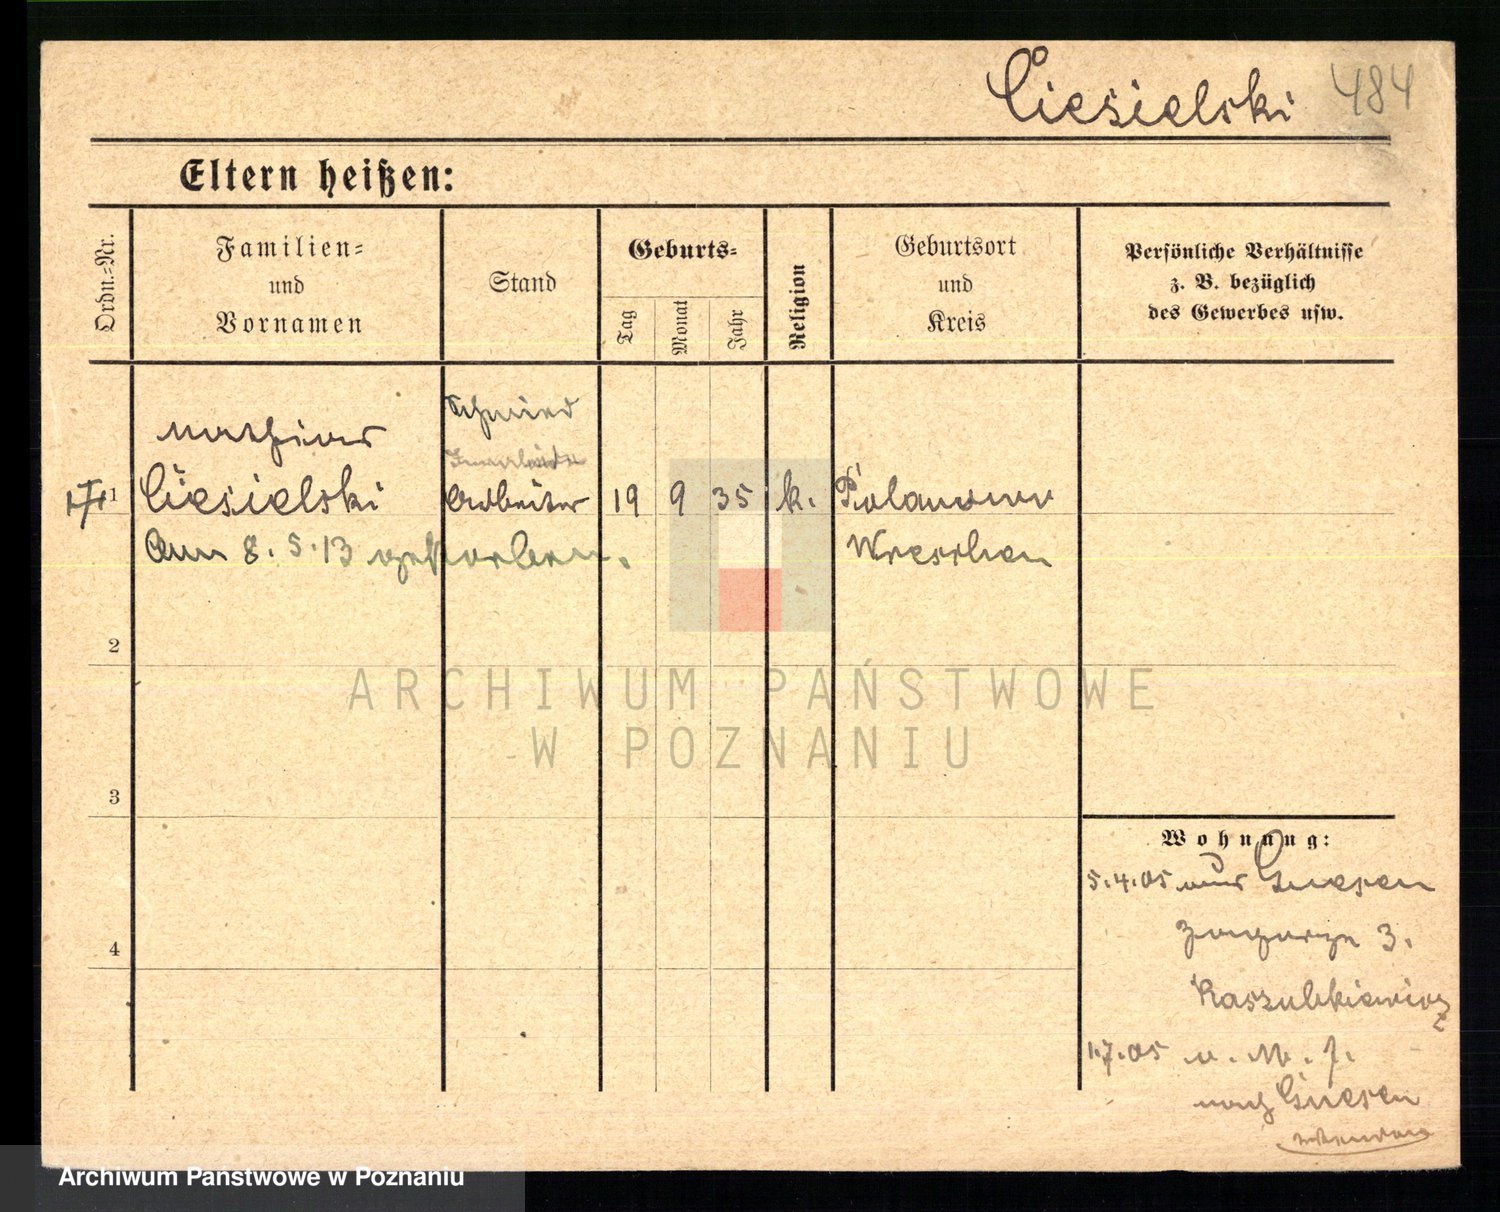 Ciesielski 484
Eltern heißen:
Ordn.=Nr.
Familien=
und
Vornamen
Stand
Geburts=
Tag
Monat
Jahr
Religion
Geburtsort
und
Kreis
Persönliche Verhältnisse
z. B. bezüglich
des Gewerbes usw.
Mathias
Schmied
1 Ciesielski Arbeiter 19 9 35 k. Polanowo
Am 8.5.13 gestorben. Wreschen
2
ARCHIWUM PAŃSTWOWE
W POZNANIU
3
Wohnung:
5.4.05 aus Gnesen
3.
Kaszubkiewicz
4
1.7.05 u. M. J.
nach Gnesen
Archiwum Państwowe w Poznaniu